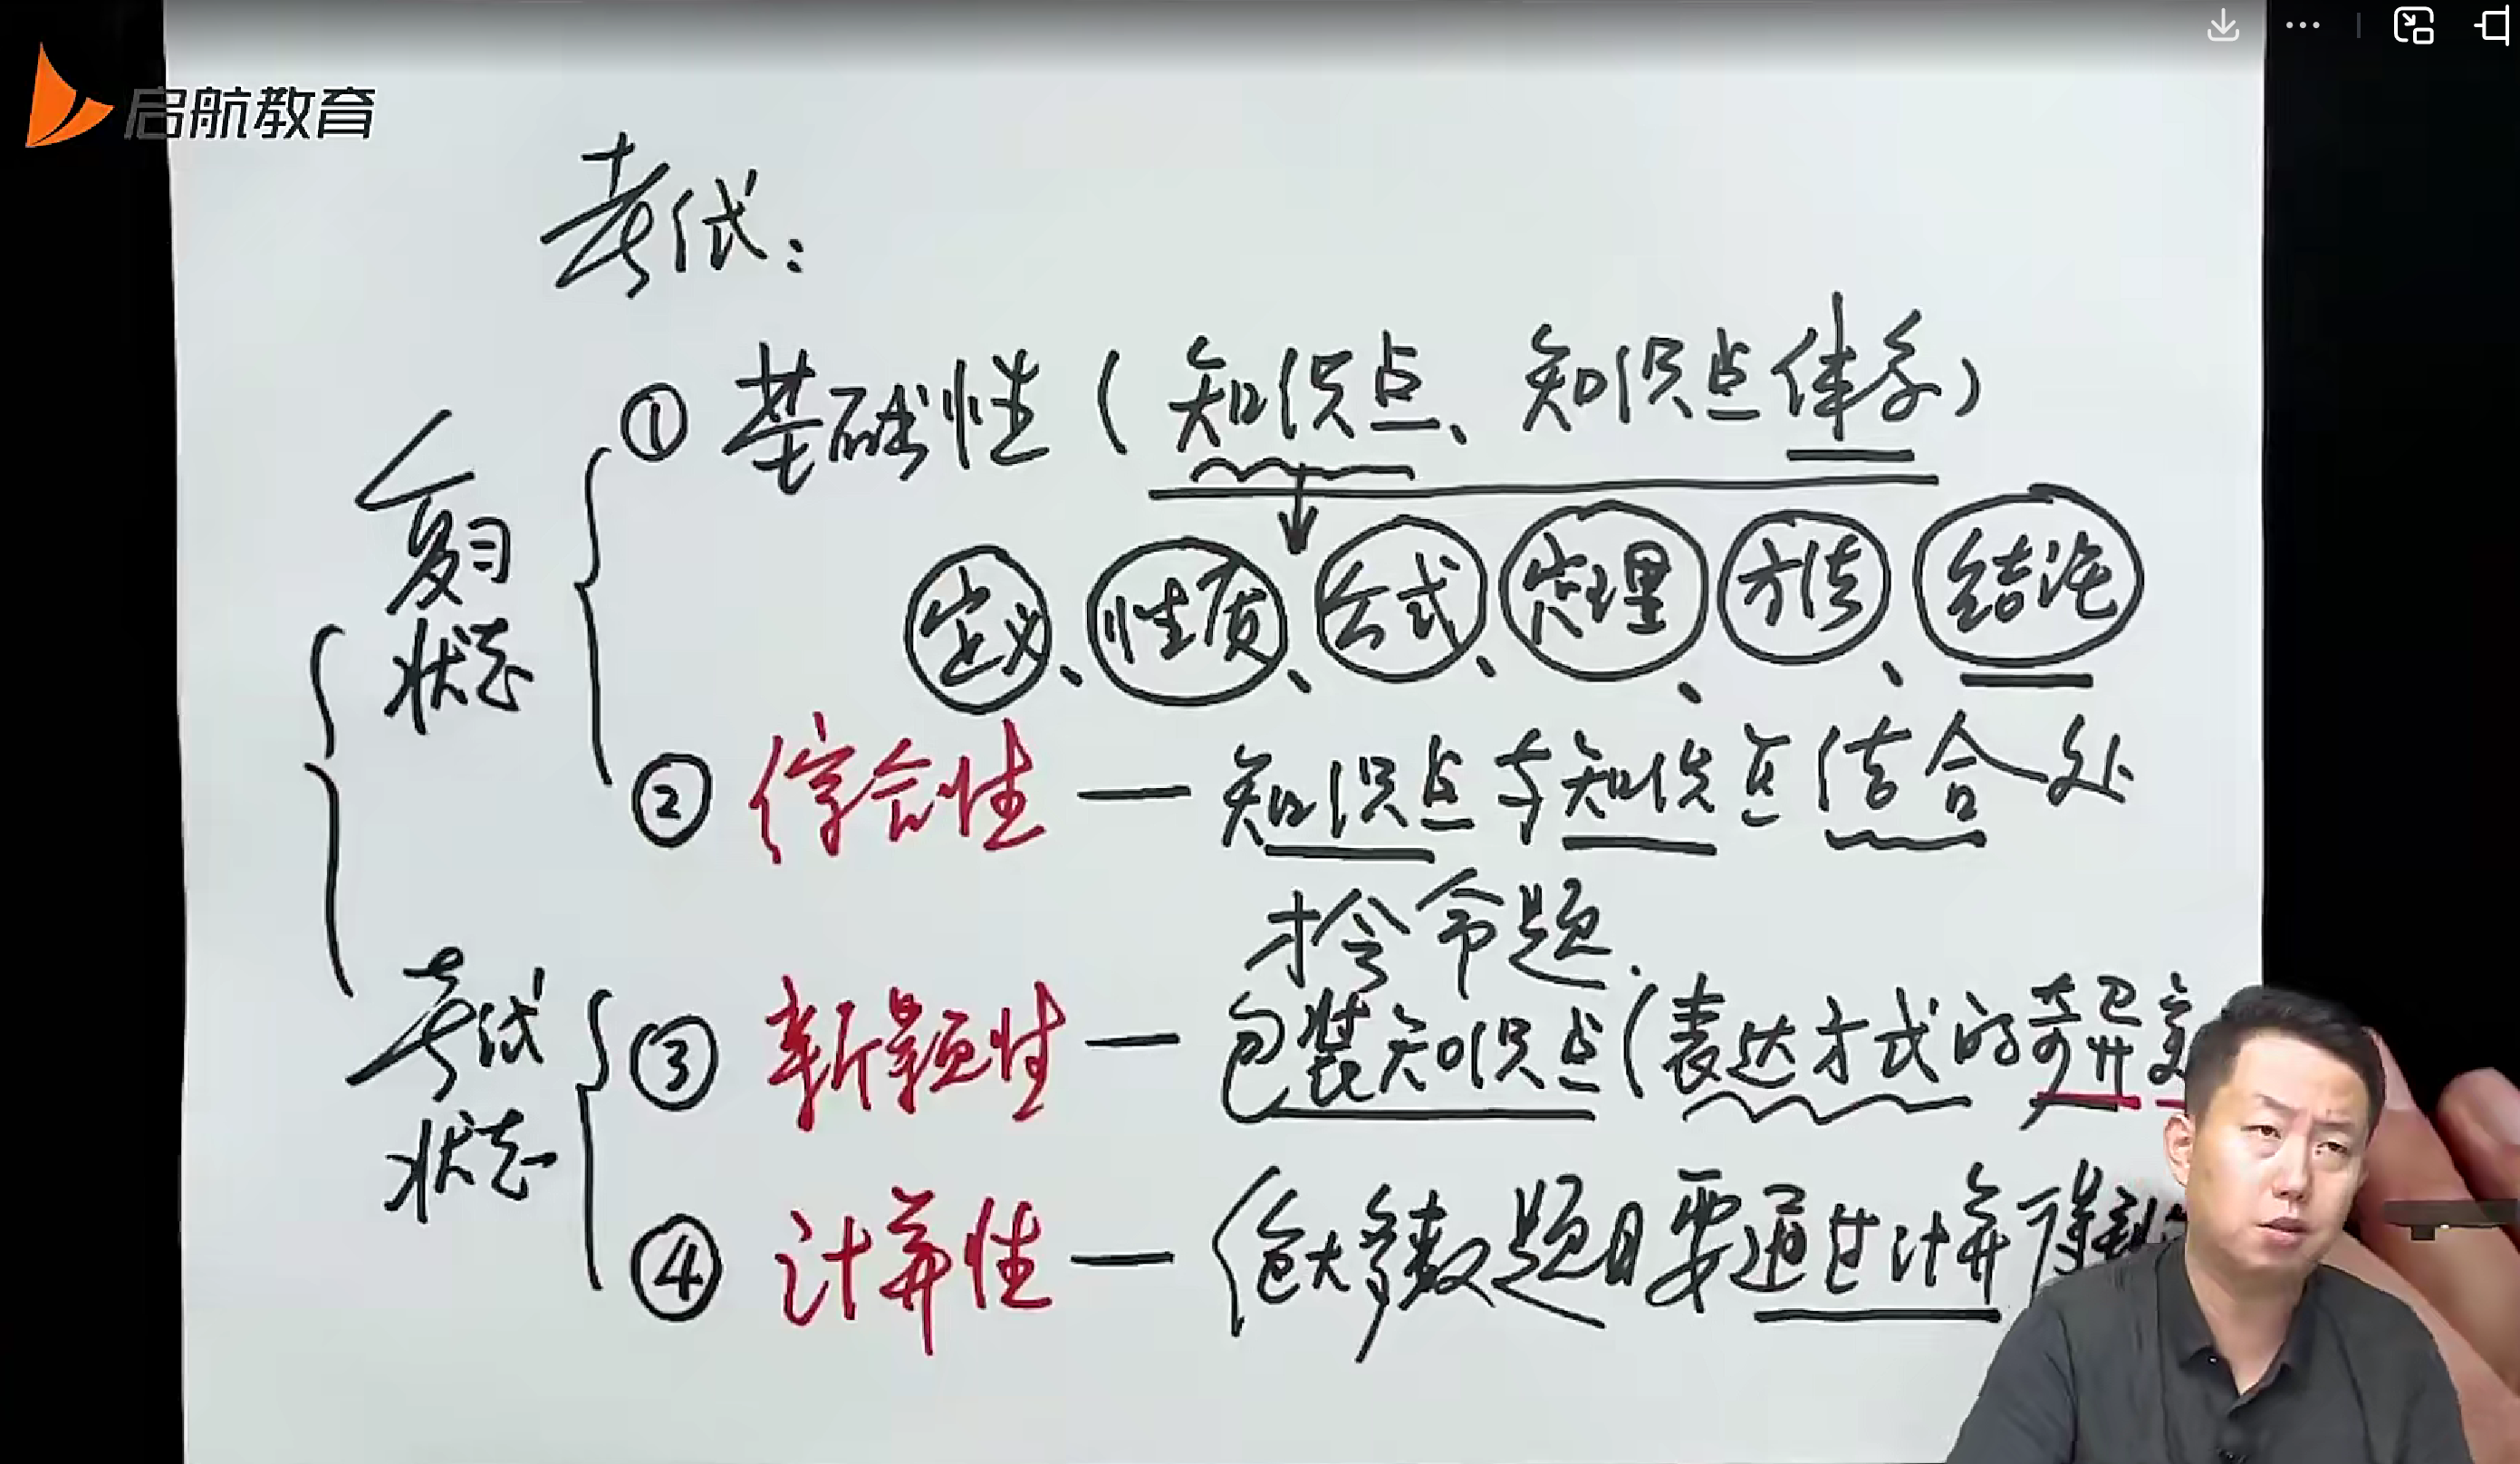 启航教育
考试：
① 基础性（知识点、知识点体系）
复习
状态
定义、性质、公式、定理、方法、结论
② 综合性 — 知识点与知识点结合处
才会命题.
考试
状态
③ 新颖性 — 包装知识点（表达方式的异变
④ 计算性 — 绝大多数题目要通过计算得到